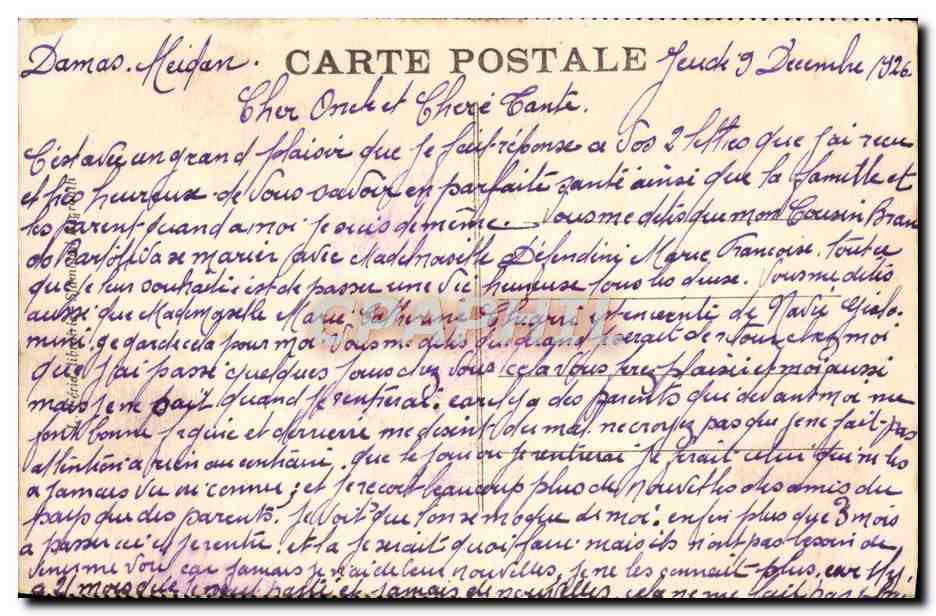 Damas. Meidan. CARTE POSTALE Jeudi 9 Decembre 1926
Cher Oncle et Cheré Tante.
C'est avec un grand plaisir que je fait réponse a vos 2 lettres que j'ai recu
et très heureux de vous savoir en parfaite santé ainsi que la famille et
les parent quand a moi je suis de même. Vous me dites que mon Cousin Bran
do va se marier avec Mademoiselle Défendini Marie Françoise. tout ce
que je leur souhaite c'est de passer une vie heureuse tous les deux. Vous me dites
aussi que Mademoiselle Marie Catherine est enceinte de
mini. je garde cela pour moi. Vous me dites que quand serait de retour chez moi
que j'ai passé quelques jours chez vous cela vous fera plaisir et moi aussi
mais je ne sait quand je rentrerai. car il y a des parents qui devant moi me
font bonne figure et derriere me disent du mal. ne croyez pas que je ne fait pas
attention a rien au contraire. que le jour ou je rentrerai je ferait celui qui ne les
a jamais vu ni connu; et je recoit beaucoup plus des nouvelles des amis du
pays que des parents. je voit que l'on se moque de moi. enfin plus que 3 mois
a passer ici et je rentre. et la je serait quoi faire mais ils n'ont pas besoin de
venir me voir car jamais je n'ai de leur nouvelles, je ne les connait plus. car il y
a 21 mois que je suis parti et jamais de nouvelles cela ne me fait pas
CPAPHIL